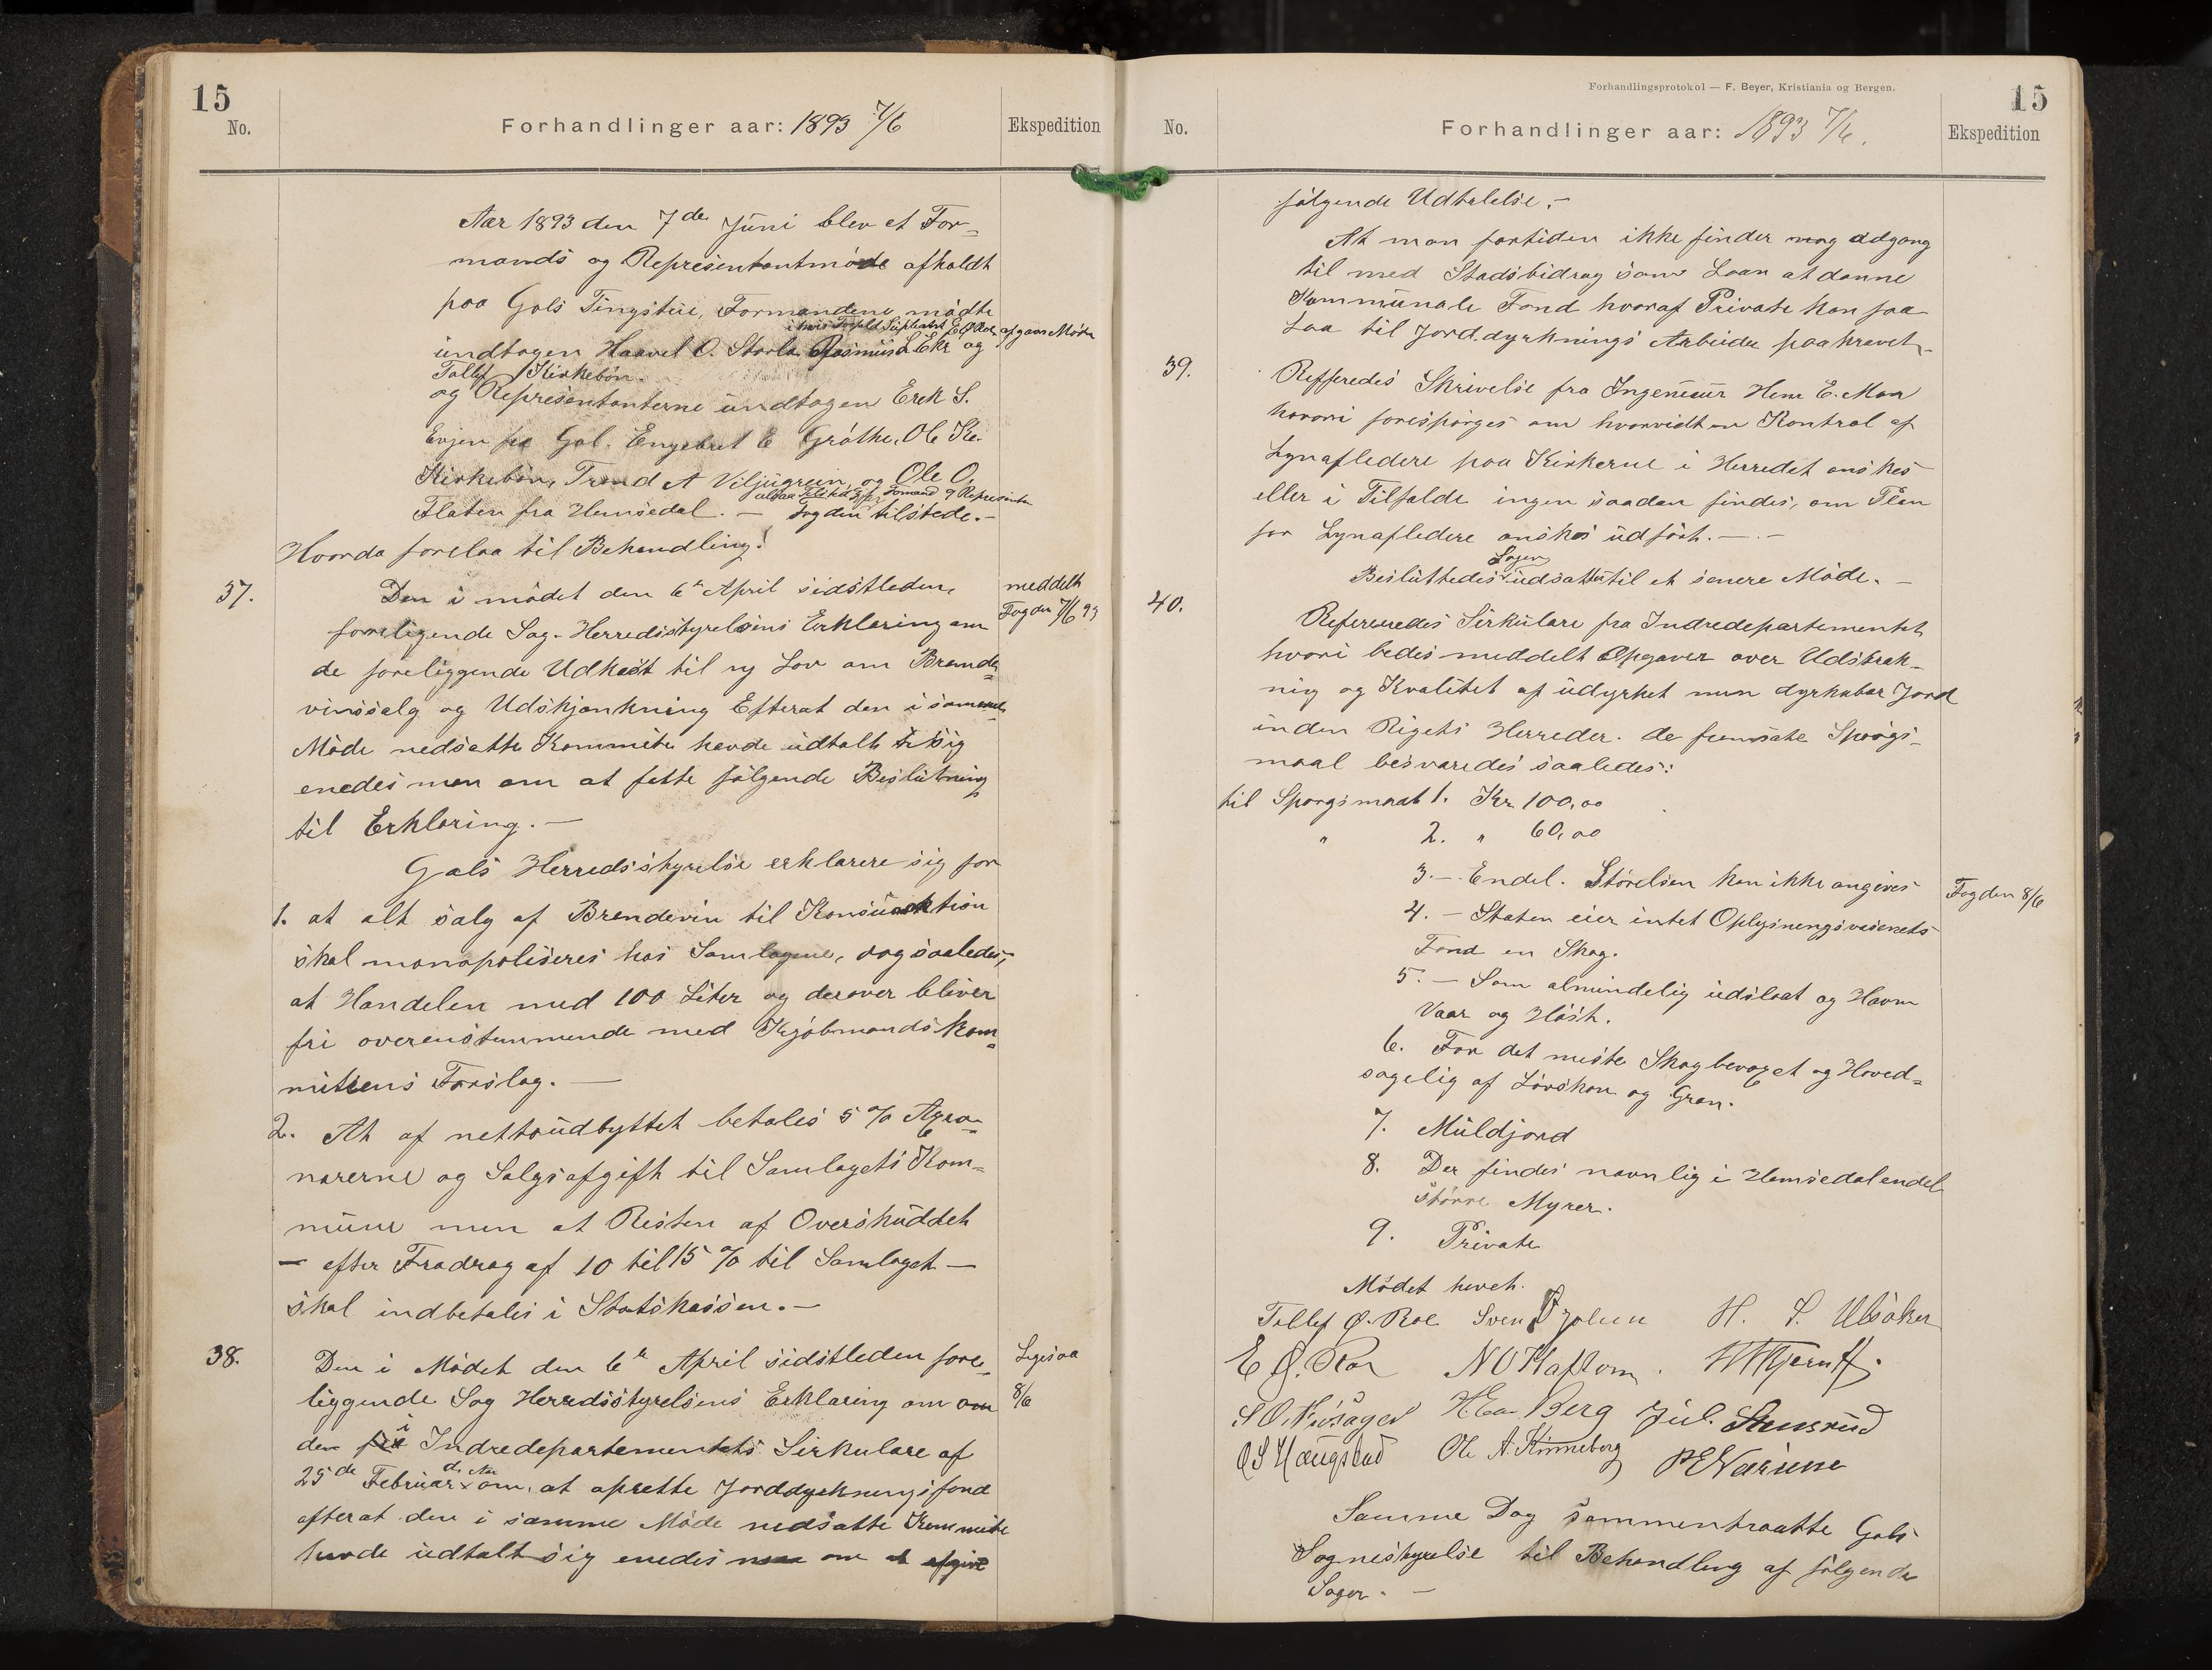 15
No.
Forhandlinger aar: 1893 7/6
Ekspedition
Aar 1893 den 7de Juni blev et For-
mands og Representantmøde afholdt
paa Gols Tingstue, Formændene mødte
undtagen Haavel O. Storla Rasmus L Ekr og
Tollef Kirkebøn.
og Representanterne undtagen Erek S.
Evjen fra Gol. Engebret E Grøthe, Ole Ke.
Kirkebøn, Trond A Viljugrein, og Ole O.
Flaten fra Hemsedal. — Fogden tilstede. —
Hvorda forelaa til Behandling!
37.
Den i mødet den 6te April sidstleden,
foreligende Sag - Herredsstyrelsens Erklæring om
de foreliggende Udkast til ny Lov om Brænde-
vinssalg og Udskjænkning Efterat den i samme
Møde nedsatte Kommite havde udtalt sig
enedes man om at fatte følgende Beslutning
til Erklæring. —
meddelt
Fogden 7/6 93
Gols Herredsstyrelse erklærer sig for
1. at alt salg af Brændevin til Konsumtion
skal monopoliseres hos Samlagene, dog saaledes,
at Handelen med 100 Liter og derover bliver
fri overenstemmende med Kjøbmandskom-
miteens Forslag. —
2. At af nettoudbyttet betales 5 % Agio-
nærerne og Salgsafgift til Samlagets Kom-
mune men at Resten af Overskuddet
— efter Fradrag af 10 til 15 % til Samlaget —
skal indbetales i Statskassen. —
38.
Den i Mødet den 6te April sidstleden fore-
liggende Sag Herredsstyrelsens Erklæring om om
den i Indredepartementets Sirkulære af
25de Februar d. Aa. om, at oprette Jorddyrkningsfond
efterat den i samme Møde nedsatte Kommite
havde udtalt sig enedes man om at afgive
Ligesaa
8/6
Forhandlingsprotokol — F. Beyer, Kristiania og Bergen.
15
No.
Forhandlinger aar: 1893 7/6.
Ekspedition
følgende Udtalelse. —
At man fortiden ikke finder nog adgang
til med Stadsbidrag som Laan at danne
Kommunale Fond hvoraf Private kan faa
Laa til Jorddyrknings Arbeider paakrævet. —
39.
Refferedes Skrivelse fra Ingeniøur Herr E. Moa
hvori forespørges om hvorvidt en Kontrol af
Lynafledere paa Kirkerne i Herredet ønskes
eller i Tilfælde ingen saadan findes, om Plan
for Lynafledere ønskes udført. —
Besluttedes Sagen udsatt til et senere Møde. —
40.
Refereredes Sirkulære fra Indredepartementet
hvori bedes meddelt Opgaver over Udstræk-
ning og Kvalitet af udyrket men dyrkbar Jord
inden Rigets Herreder. de fremsate Spørgs-
maal besvaredes saaledes:
til Spørgsmaal 1. Kr 100,00
" 2. " 60,00
3. — Endel. Størelsen kan ikke angives
4. — Staten eier intet Oplysningsvæsenets
Fond en Skog.
Fogden 8/6
5. — Som almindelig udslaat og Havn
Vaar og Høst.
6. For det meste Skogbevoxet og Hoved-
sagelig af Løvskov og Gran.
7. Muldjord
8. Der findes navnlig i Hemsedal endel
større Myrer.
9. Private
Mødet hævet.
Tollef Ø. Roe Sven Tjolun H. S. Ulsaker
E Ø. Roe N O Kaftom. H Kjerulf.
S O. Nøsager H Ears Berg Jul. Stensrud
O S Haugstad Ole A. Kinneberg P E Narum
Samme Dag sammentraatte Gols
Sognestyrelse til Behandling af følgende
Sager. —